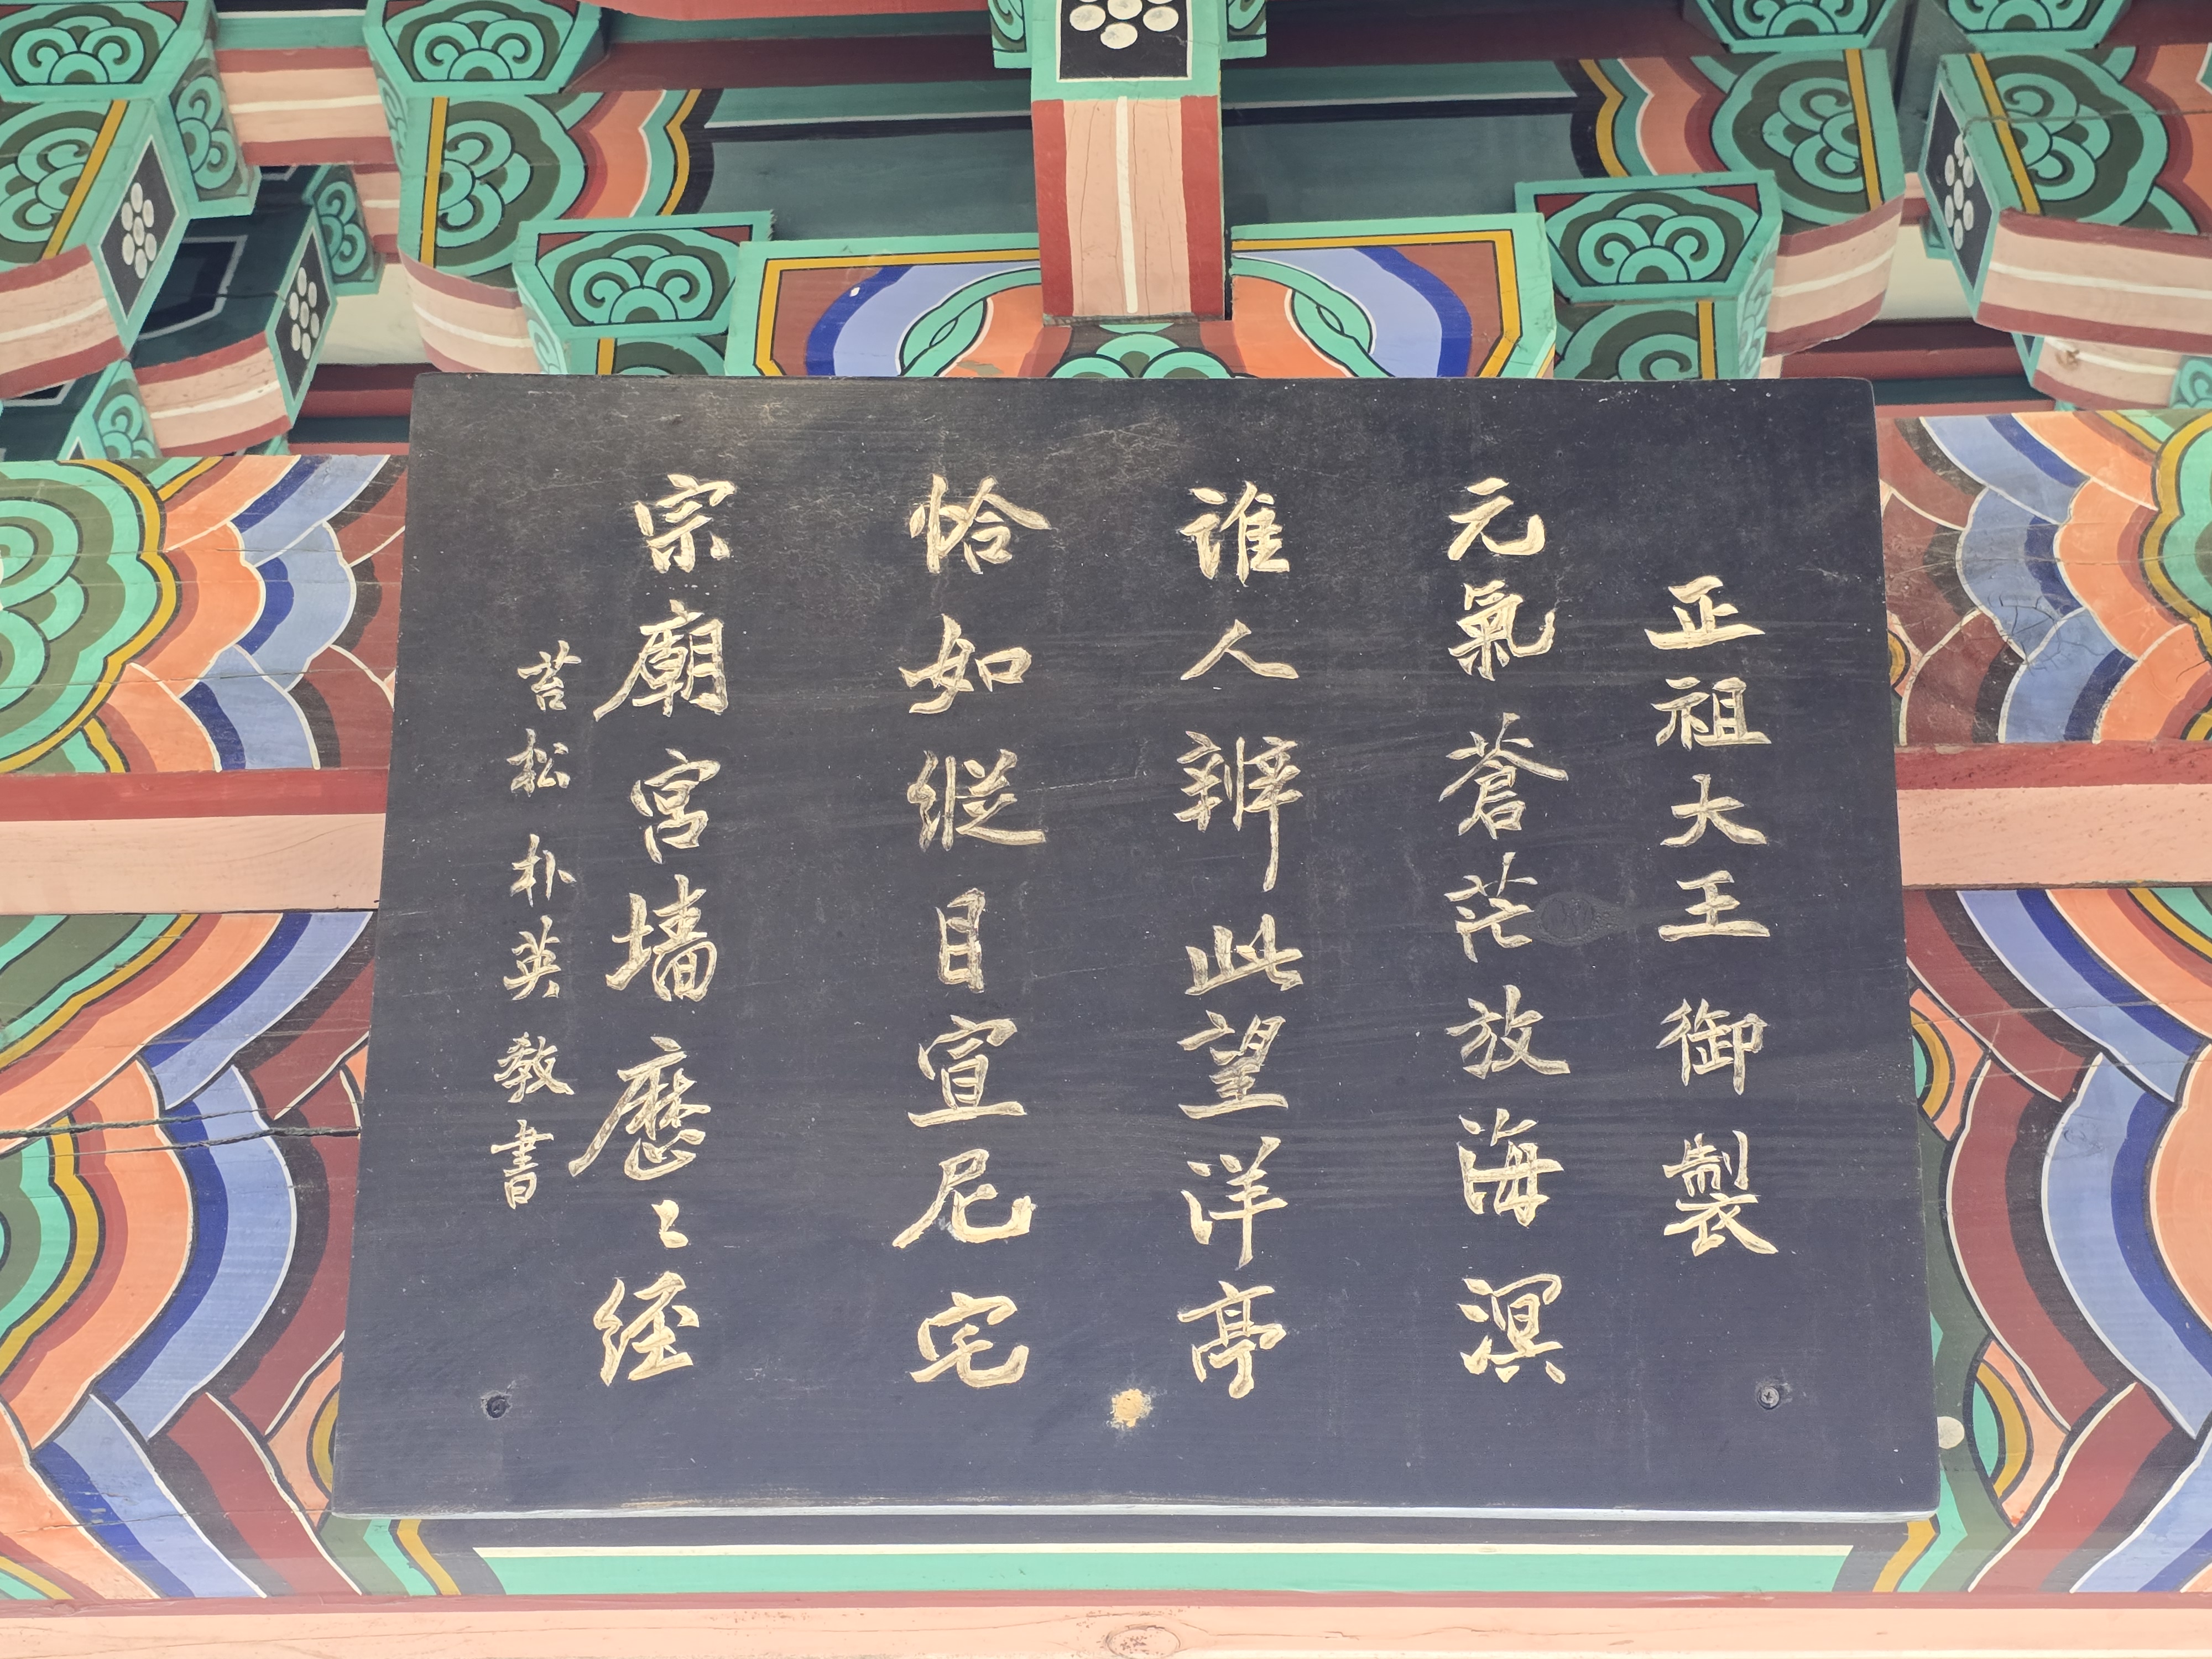 正祖大王御製
元氣蒼茫放海溟
誰人辨此望洋亭
恰如縱目宣尼宅
宗廟宮墻歷〻經
苔松朴英敎書